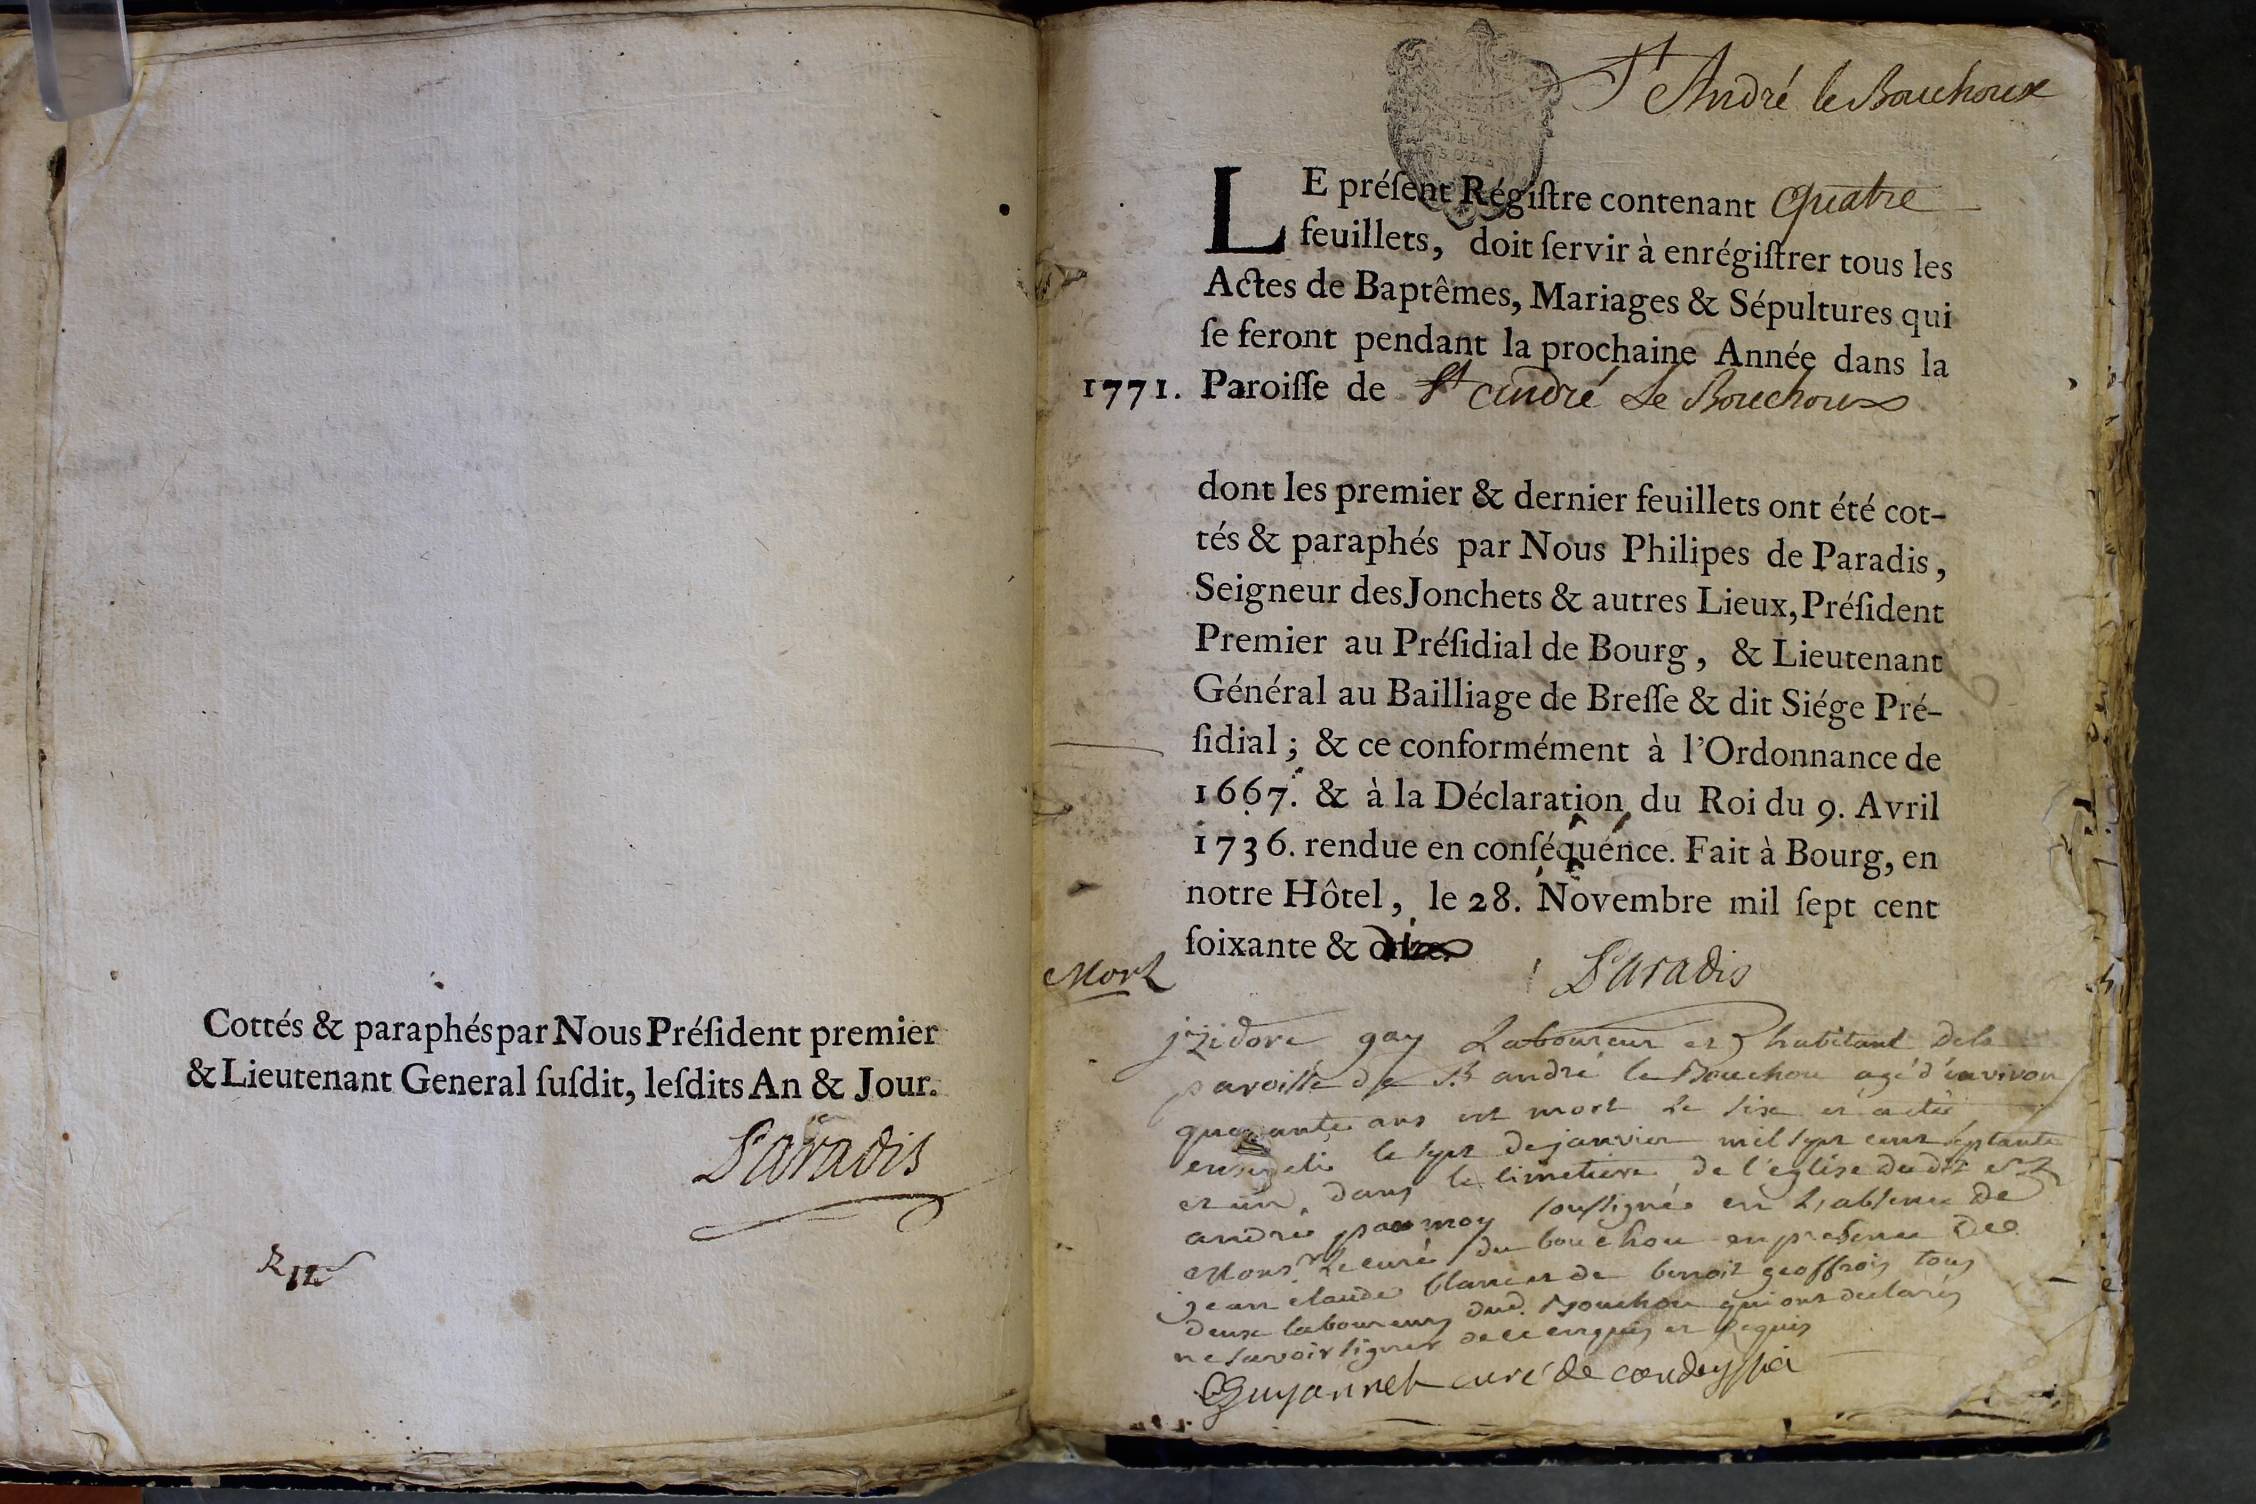 Cottés & paraphés par Nous Préſident premier
& Lieutenant General ſuſdit, leſdits An & Jour.
Paradis
St André le Bouchoux
LE préſent Régiſtre contenant quatre
feuillets, doit ſervir à enrégiſtrer tous les
Actes de Baptêmes, Mariages & Sépultures qui
ſe feront pendant la prochaine Année dans la
1771. Paroiſſe de St andré Le Bouchoux
dont les premier & dernier feuillets ont été cot-
tés & paraphés par Nous Philipes de Paradis,
Seigneur des Jonchets & autres Lieux, Préſident
Premier au Préſidial de Bourg, & Lieutenant
Général au Bailliage de Breſſe & dit Siége Pré-
ſidial ; & ce conformément à l'Ordonnance de
1667. & à la Déclaration du Roi du 9. Avril
1736. rendue en conſéquence. Fait à Bourg, en
notre Hôtel, le 28. Novembre mil ſept cent
ſoixante &
Paradis
Mort
jzidore gay Laboureur et habitant dela
paroisse de St andré le Bouchou agé d'environ
quarante ans est mort le six et a été
enseveli le sept de janvier mil sept cent septante
et un dans le cimetiere de l'église dudit st
andré par moy soussigné en L'absence de
Monsr Le curé du bouchou en presence de
jean claude blanc et de benoit geoffroy tous
deux laboureurs dud. Bouchou qui ont declarés
ne savoir signer de ce enquis et Requis
Guyonnet curé de condeyssia